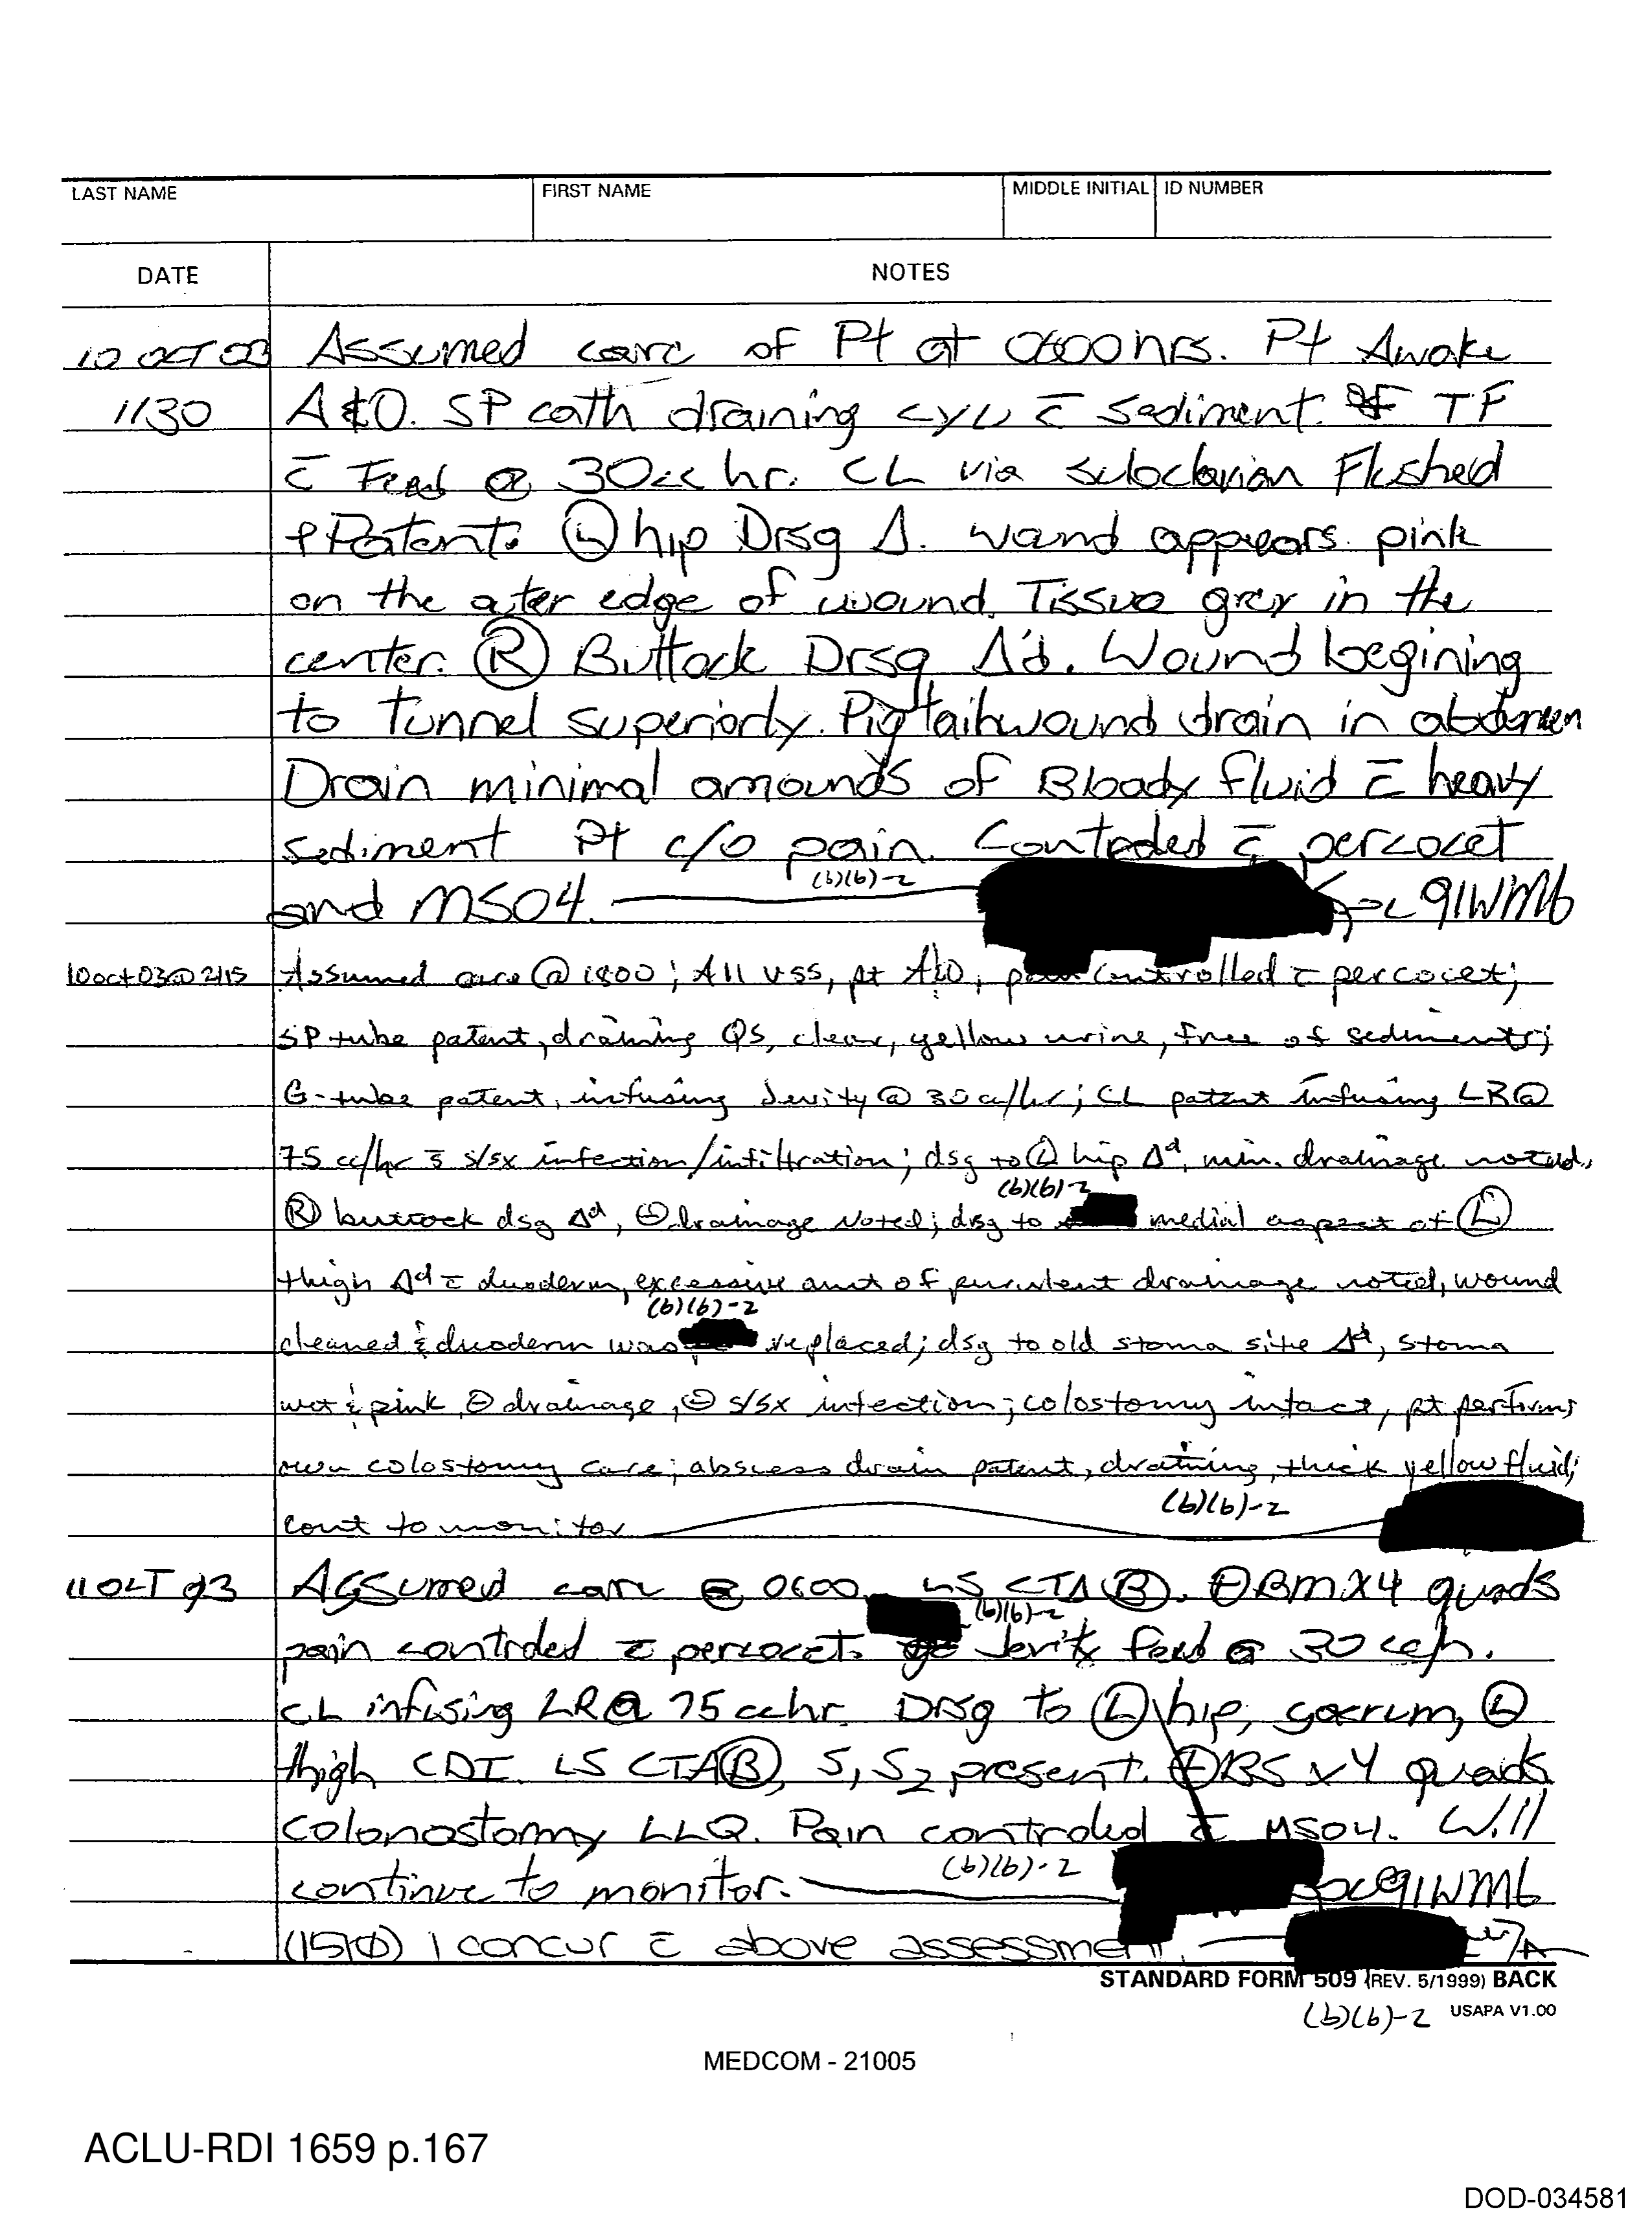 LAST NAME FIRST NAME MIDDLE INITIAL ID NUMBER
DATE NOTES
10 OCT 03 Assumed care of Pt at 0600hrs. Pt Awake
1130 A&O. SP cath draining CYU c̄ sediment. TF
c̄ Feed @ 30cc hr. CL via subclavian Flushed
+ Patent. Ⓛ hip Drsg Δ. wound appears pink
on the outer edge of wound. Tissue grey in the
center. Ⓡ Buttock Drsg Δ'd. Wound begining
to tunnel superiorly. Pigtail wound drain in abdomen
Drain minimal amounds of Bloody fluid c̄ heavy
sediment Pt c/o pain. Controled c̄ percocet
and MSO4. 91WM6
(b)(6)-2
10oct03@2115 Assumed care @ 1800; All VSS, pt A&O, pain controlled c̄ percocet;
SP tube patent, draining QS, clear, yellow urine, free of sediments;
G-tube patent, infusing Jevity @ 30 cc/hr; CL patent infusing LR@
75 cc/hr s̄ s/sx infection/infiltration; dsg to Ⓛ hip Δd, min. drainage noted,
(b)(6)-2
Ⓡ buttock dsg Δd, ⊖ drainage noted; dsg to medial aspect of Ⓛ
thigh Δd c̄ duoderm, excessive amt of purulent drainage noted, wound
(b)(6)-2
cleaned & duoderm was replaced; dsg to old stoma site Δd, stoma
wet & pink, ⊖ drainage, ⊖ s/sx infection; colostomy intact, pt performs
own colostomy care; abscess drain patent, draining, thick yellow fluid;
(b)(6)-2
cont to monitor
11 OCT 03 Assumed care @ 0600. LS CTA Ⓑ. ⊕ BM X4 quads
(b)(6)-2
pain controled c̄ percocet. Jevity feed @ 30 cc/h.
CL infusing LR@ 75 cchr. Drsg to Ⓛ hip, sacrum, Ⓛ
thigh CDI. LS CTAⒷ, S1 S2 present. ⊕BS x4 quads
Colonostomy LLQ. Pain controled c̄ MSO4. Will
(b)(6)-2
continue to monitor. 91WM6
(1510) I concur c̄ above assessment.
STANDARD FORM 509 (REV. 5/1999) BACK
(b)(6)-2 USAPA V1.00
MEDCOM - 21005
ACLU-RDI 1659 p.167
DOD-034581